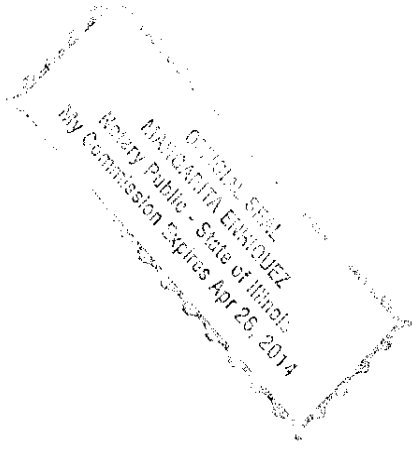 OFFICIAL SEAL
MARGARITA ENRIQUEZ
Notary Public - State of Illinois
My Commission Expires Apr 26, 2014